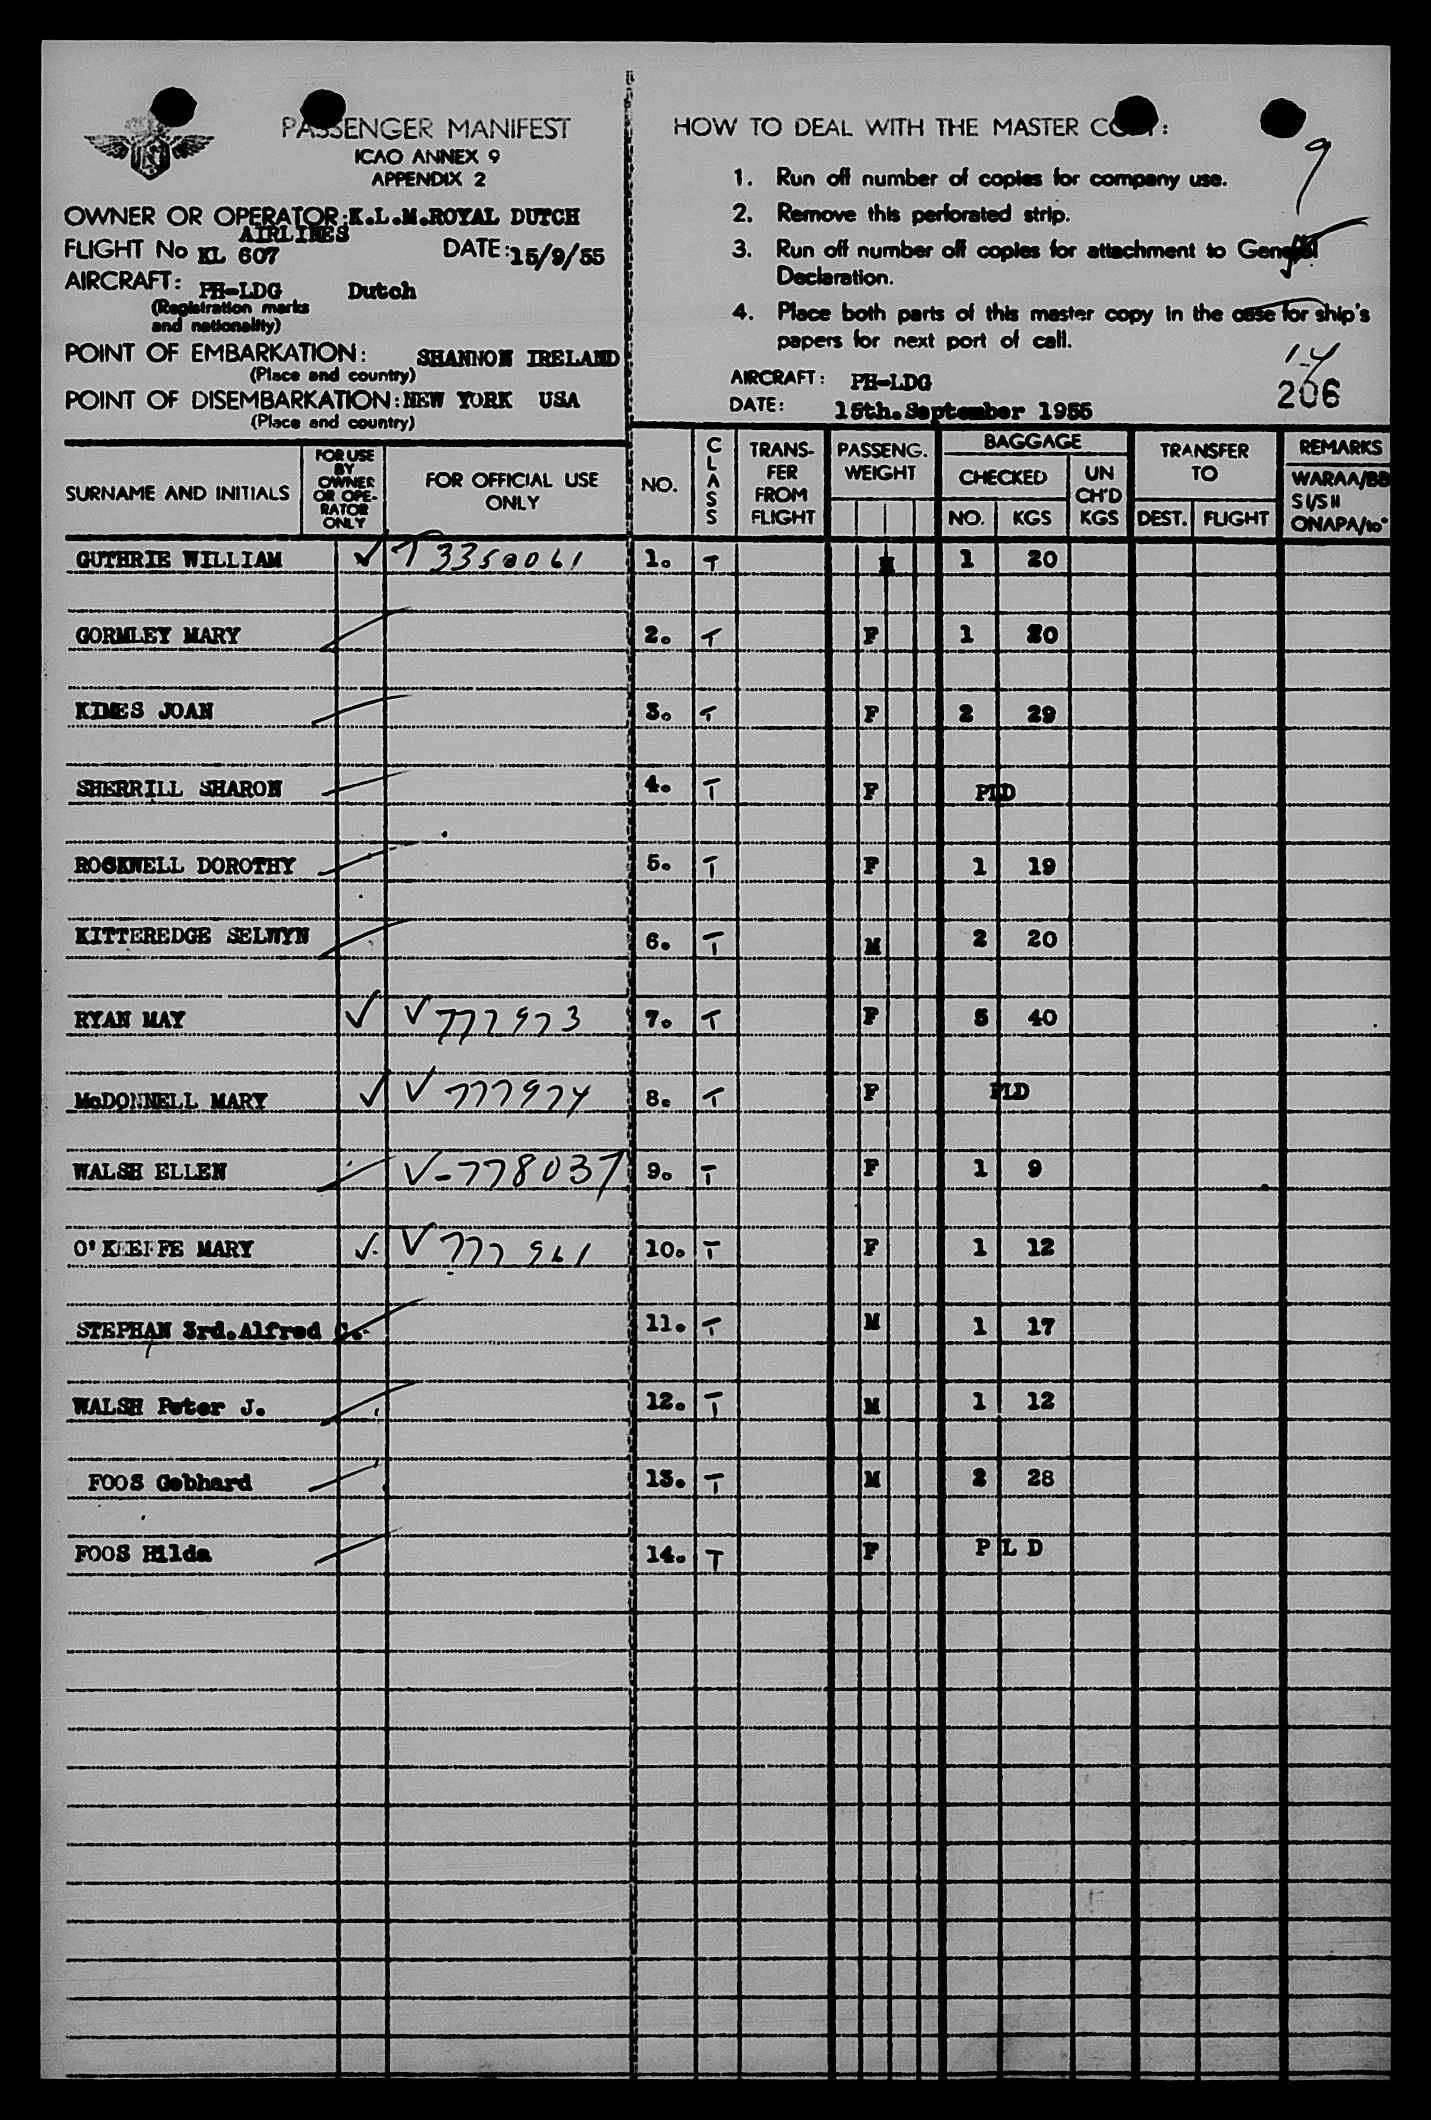 PASSENGER MANIFEST
ICAO ANNEX 9
APPENDIX 2
OWNER OR OPERATOR: K.L.M.ROYAL DUTCH
AIRLINES
FLIGHT No KL 607 DATE: 15/9/55
AIRCRAFT: PH-LDG Dutch
(Registration marks
and nationality)
POINT OF EMBARKATION: SHANNON IRELAND
(Place and country)
POINT OF DISEMBARKATION: NEW YORK USA
(Place and country)
HOW TO DEAL WITH THE MASTER COPY:
9
1. Run off number of copies for company use.
2. Remove this perforated strip.
3. Run off number off copies for attachment to General
Declaration.
4. Place both parts of this master copy in the case for ship's
papers for next port of call.
AIRCRAFT: PH-LDG
DATE: 15th.September 1955
14
206
SURNAME AND INITIALS
FOR USE
BY
OWNER
OR OPE-
RATOR
ONLY
FOR OFFICIAL USE
ONLY
NO.
CLASS
TRANS-
FER
FROM
FLIGHT
PASSENG.
WEIGHT
BAGGAGE
CHECKED
NO. KGS
UN
CH'D
KGS
TRANSFER
TO
DEST. FLIGHT
REMARKS
WARAA/BB
SI/SH
ONAPA/to
GUTHRIE WILLIAM T 3350061 1. T 1 20
GORMLEY MARY 2. T F 1 20
KIMES JOAN 3. T F 2 29
SHERRILL SHARON 4. T F PLD
ROCKWELL DOROTHY 5. T F 1 19
KITTEREDGE SELWYN 6. T M 2 20
RYAN MAY V 777973 7. T F 5 40
McDONNELL MARY V 777974 8. T F PLD
WALSH ELLEN V-778037 9. T F 1 9
O'KEEFFE MARY V 777961 10. T F 1 12
STEPHAN 3rd.Alfred C. 11. T M 1 17
WALSH Peter J. 12. T M 1 12
FOOS Gebhard 13. T M 2 28
FOOS Hilda 14. T F P L D